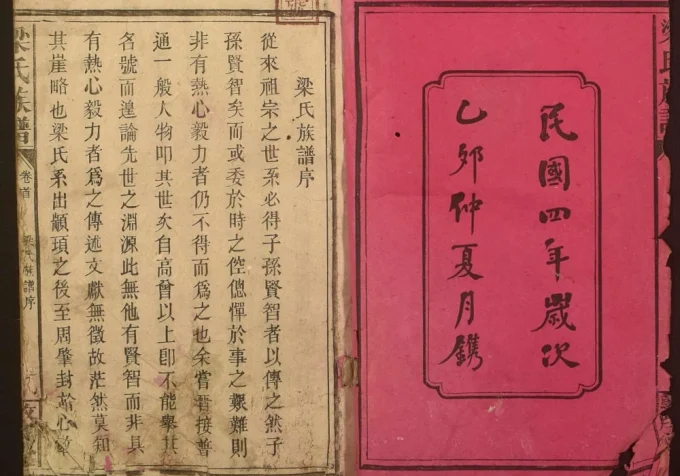 民國四年歲次
乙卯仲夏月鐫
梁氏族譜序
從來祖宗之世系必得子孫賢智者以傳之然子
孫賢智矣而或委於時之倥傯憚於事之艱難則
非有熱心毅力者仍不得而為之也余嘗晉接普
通一般人物叩其世矣自高曾以上卽不能舉其
名號而遑論先世之淵源此無他有賢智而非具
有熱心毅力者爲之傳述文獻無徵故茫然莫知
其崖略也梁氏系出顓頊之後至周肇封於
梁氏族譜
卷首
梁氏族譜序